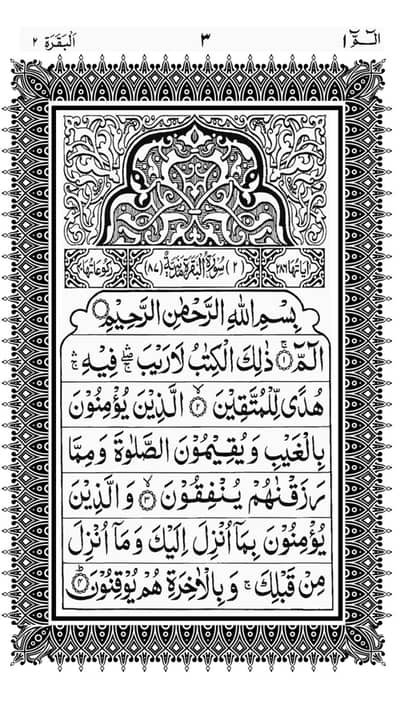 الٓمّٓ ١ ٣ اَلْبَقَرَة ٢
اٰیاتُھَا ٢٨٦ (٢) سُوْرَةُ الْبَقَرَةِ مَدَنِیَّةٌ (٨٧) رُکُوْعَاتُھَا ٤٠
بِسْمِ اللّٰهِ الرَّحْمٰنِ الرَّحِیْمِ
الٓمّٓ ۚ﴿١﴾ ذٰلِكَ الْكِتٰبُ لَا رَیْبَ ۛۖ فِیْهِ ۛۚ
هُدًی لِّلْمُتَّقِیْنَ ۙ﴿٢﴾ الَّذِیْنَ یُؤْمِنُوْنَ
بِالْغَیْبِ وَ یُقِیْمُوْنَ الصَّلٰوةَ وَ مِمَّا
رَزَقْنٰهُمْ یُنْفِقُوْنَ ۙ﴿٣﴾ وَ الَّذِیْنَ
یُؤْمِنُوْنَ بِمَاۤ اُنْزِلَ اِلَیْكَ وَ مَاۤ اُنْزِلَ
مِنْ قَبْلِكَ ۚ وَ بِالْاٰخِرَةِ هُمْ یُوْقِنُوْنَ ؕ﴿٤﴾